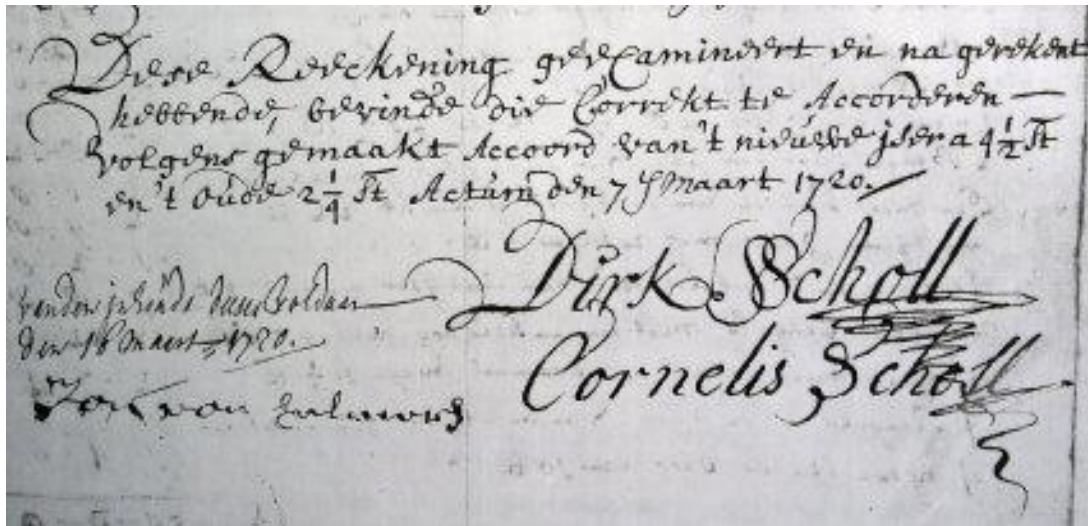 Dese Reeckening geexamineert en na gerekent
hebbende, bevinde die Correkt te Accorderen —
volgens gemaakt Accoord van't nieuwe jser a 4 1/2 st
en 't oude 2 1/4 st Actum den 7 Maart 1720.
Dirk Scholl
den 16 Maert 1720.
Cornelis Scholl
van